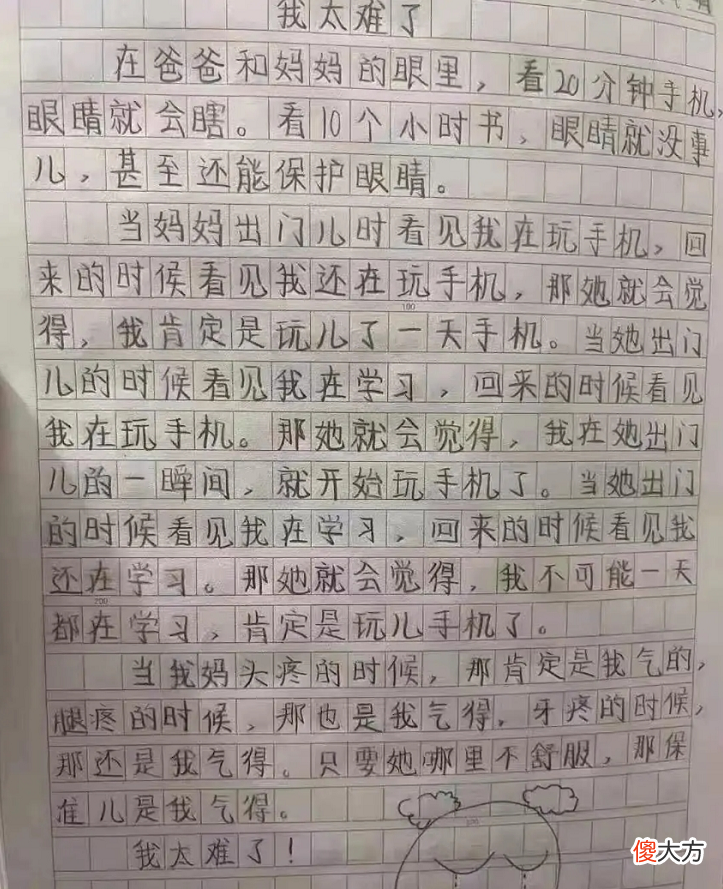 我太难了
在爸爸和妈妈的眼里，看20分钟手机，
眼睛就会瞎。看10个小时书、眼睛就没事
儿，甚至还能保护眼睛。
当妈妈出门儿时看见我在玩手机，回
来的时候看见我还在玩手机，那她就会觉
100
得，我肯定是玩儿了一天手机。当她出门
儿的时候看见我在学习，回来的时候看见
我在玩手机。那她就会觉得，我在她出门
儿的一瞬间，就开始玩手机了。当她出门
的时候看见我在学习，回来的时候看见我
还在学习。那她就会觉得，我不可能一天
200
都在学习，肯定是玩儿手机了。
当我妈头疼的时候，那肯定是我气的，
腿疼的时候，那也是我气得，牙疼的时候，
那还是我气得。只要她哪里不舒服，那保
准儿是我气得。
300
我太难了！
傻大方